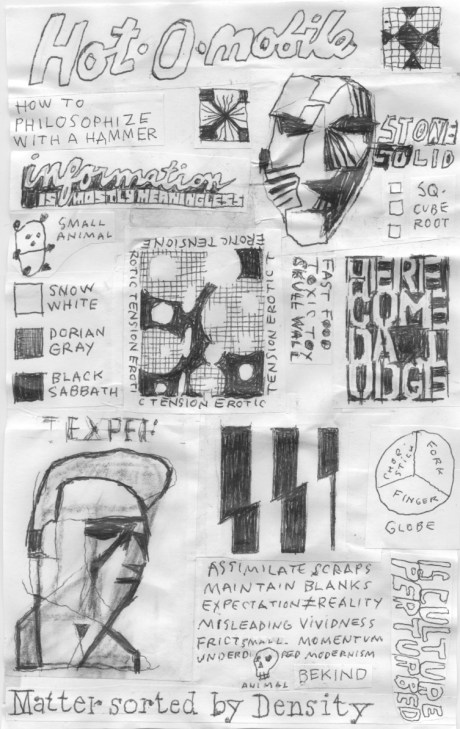 Hot·O·mobile
HOW TO
PHILOSOPHIZE
WITH A HAMMER
STONE
SOLID
information
IS MOSTLY MEANINGLESS
SQ.
CUBE
ROOT
SMALL
ANIMAL
SNOW
WHITE
DORIAN
GRAY
BLACK
SABBATH
EROTIC TENSION E
EROTIC TENSION
ROTIC TENSION EROTI
TENSION EROTIC T
C TENSION EROTIC
FAST FOOD
TOXIC TOY
WALK
HERE
COME
DA J
UDGE
CHOP-
STICK
FORK
FINGER
GLOBE
ASSIMILATE SCRAPS
MAINTAIN BLANKS
EXPECTATION≠REALITY
MISLEADING VIVIDNESS
FRICT SMALL. MOMENTUM
MODERNISM
ANIMAL
BEKIND
IS CULTURE
PERTURBED
Matter sorted by Density